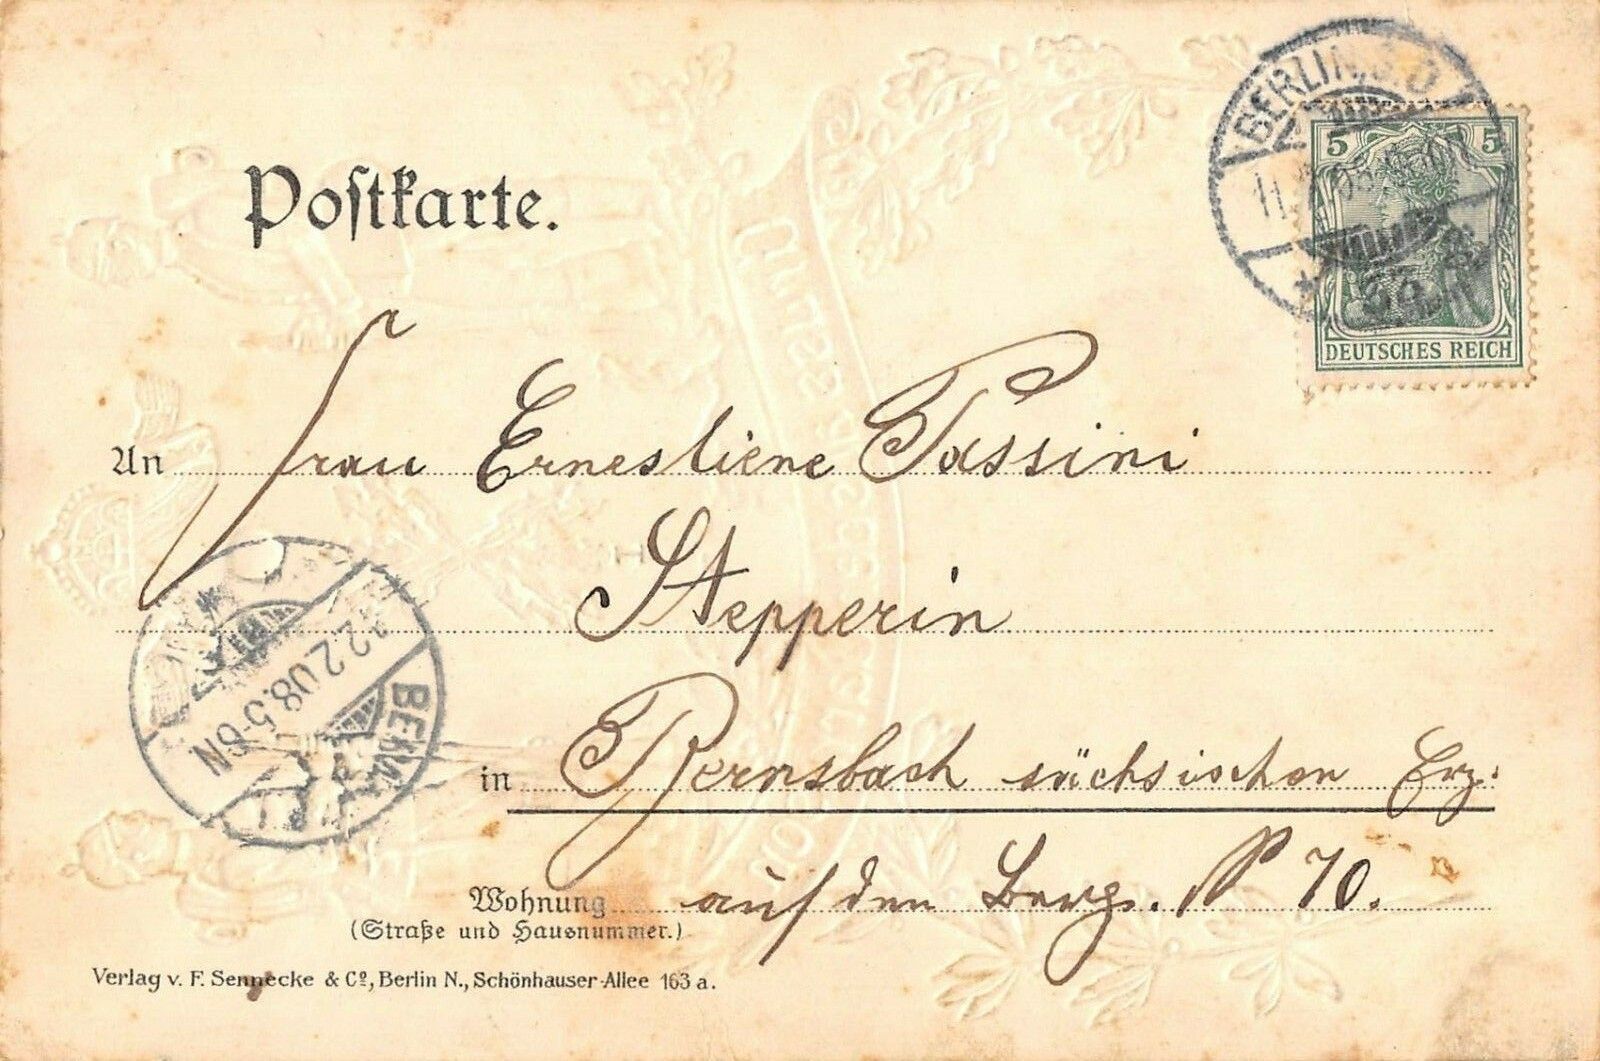 Postkarte.
BERLIN, S.O.
5 5
DEUTSCHES REICH
An Frau Ernestiene Passini
Stepperin
in Bernsbach sächsischen Erz.
Wohnung auf den Berg. N 70.
(Straße und Hausnummer.)
2.2.08.5-6N
Verlag v. F. Sennecke & Co, Berlin N., Schönhauser-Allee 163 a.